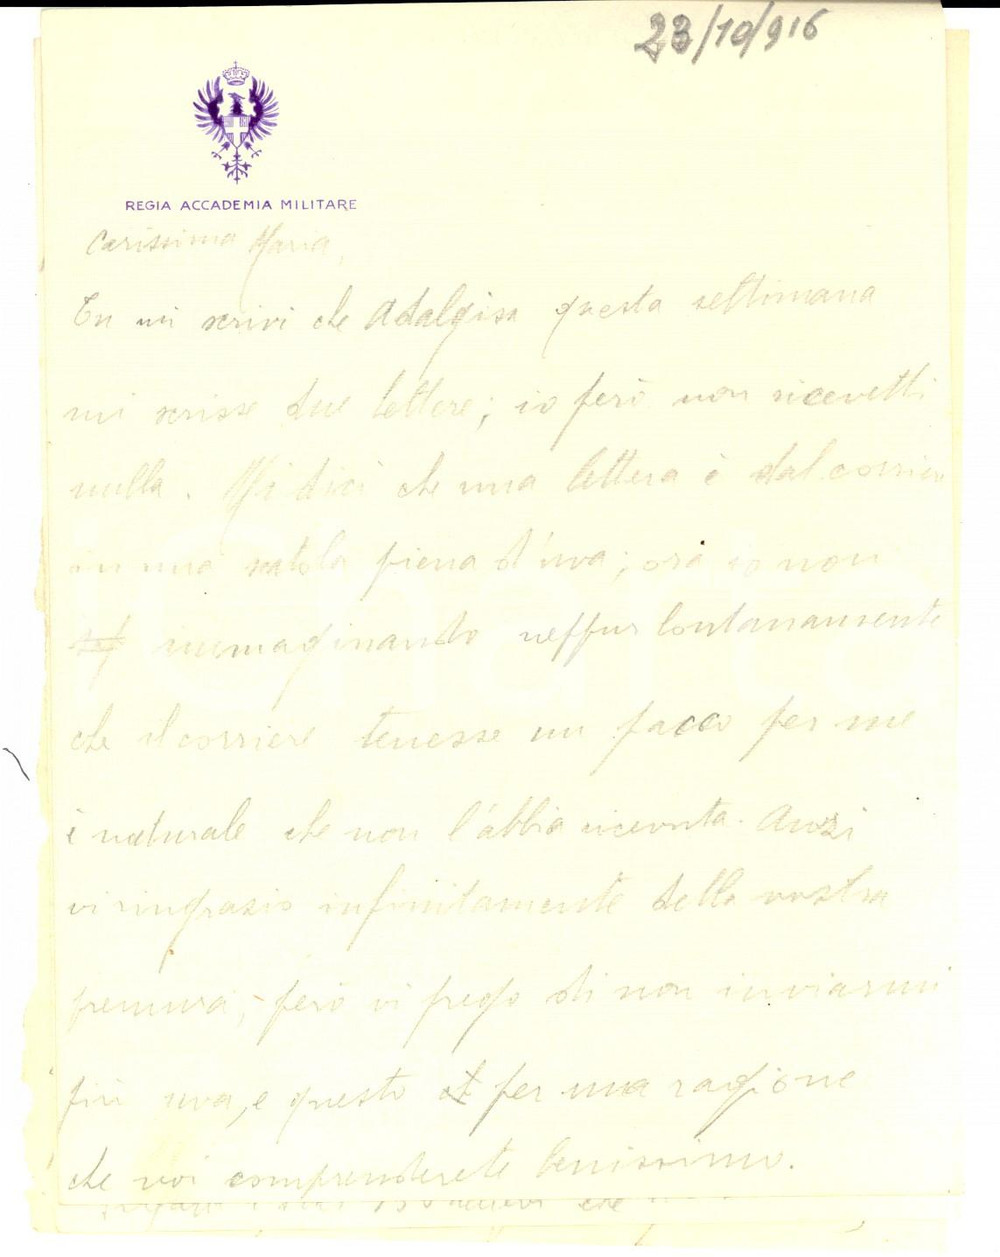 23/10/916
REGIA ACCADEMIA MILITARE
Carissima Maria,
Tu mi scrivi che Adalgisa questa settimana
mi scrisse due lettere; io però non ricevetti
nulla. Mi dici che una lettera è dal corriere
in una scatola piena d'uva; ora io non
immaginando neppur lontanamente
che il corriere tenesse un pacco per me
è naturale che non l'abbia ricevuta. Anzi
vi ringrazio infinitamente della vostra
premura, però vi prego di non inviarmi
più uva, e questo per una ragione
che voi comprenderete benissimo.